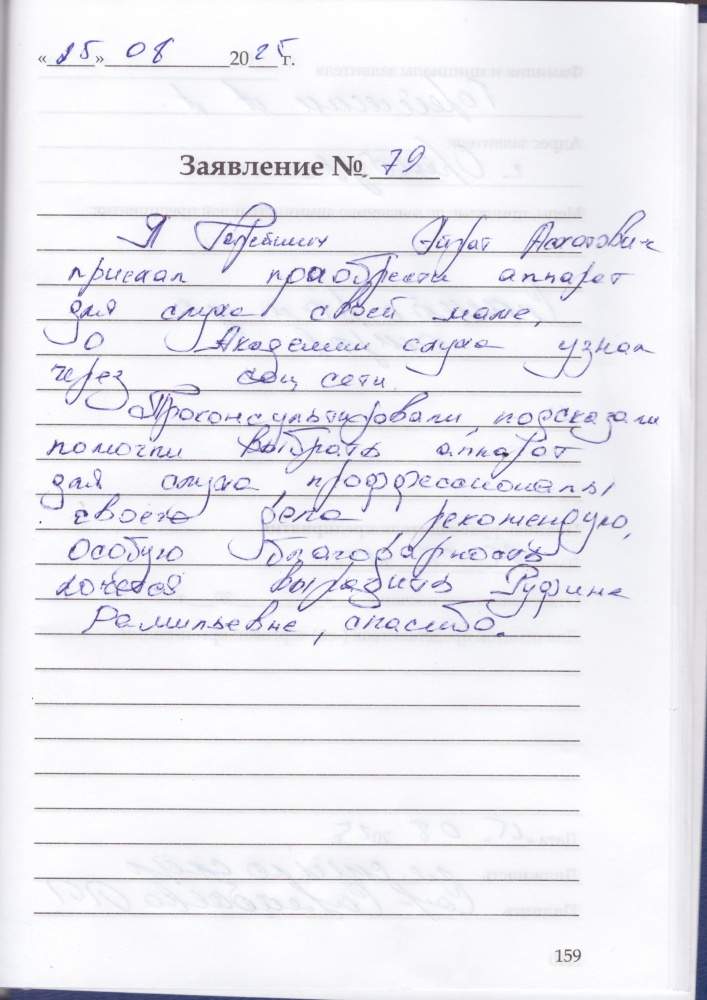 «25» 08 2025 г.
Заявление № 79
Я Айрат Асхатович
приехал приобрести аппарат
для слуха своей маме,
о Академии слуха узнал
через соц сети.
Проконсультировали, подсказали
помогли выбрать аппарат
для слуха, профессионалы
своего дела, рекомендую,
особую благодарность
хочется выразить Руфине
Рамильевне, спасибо.
159